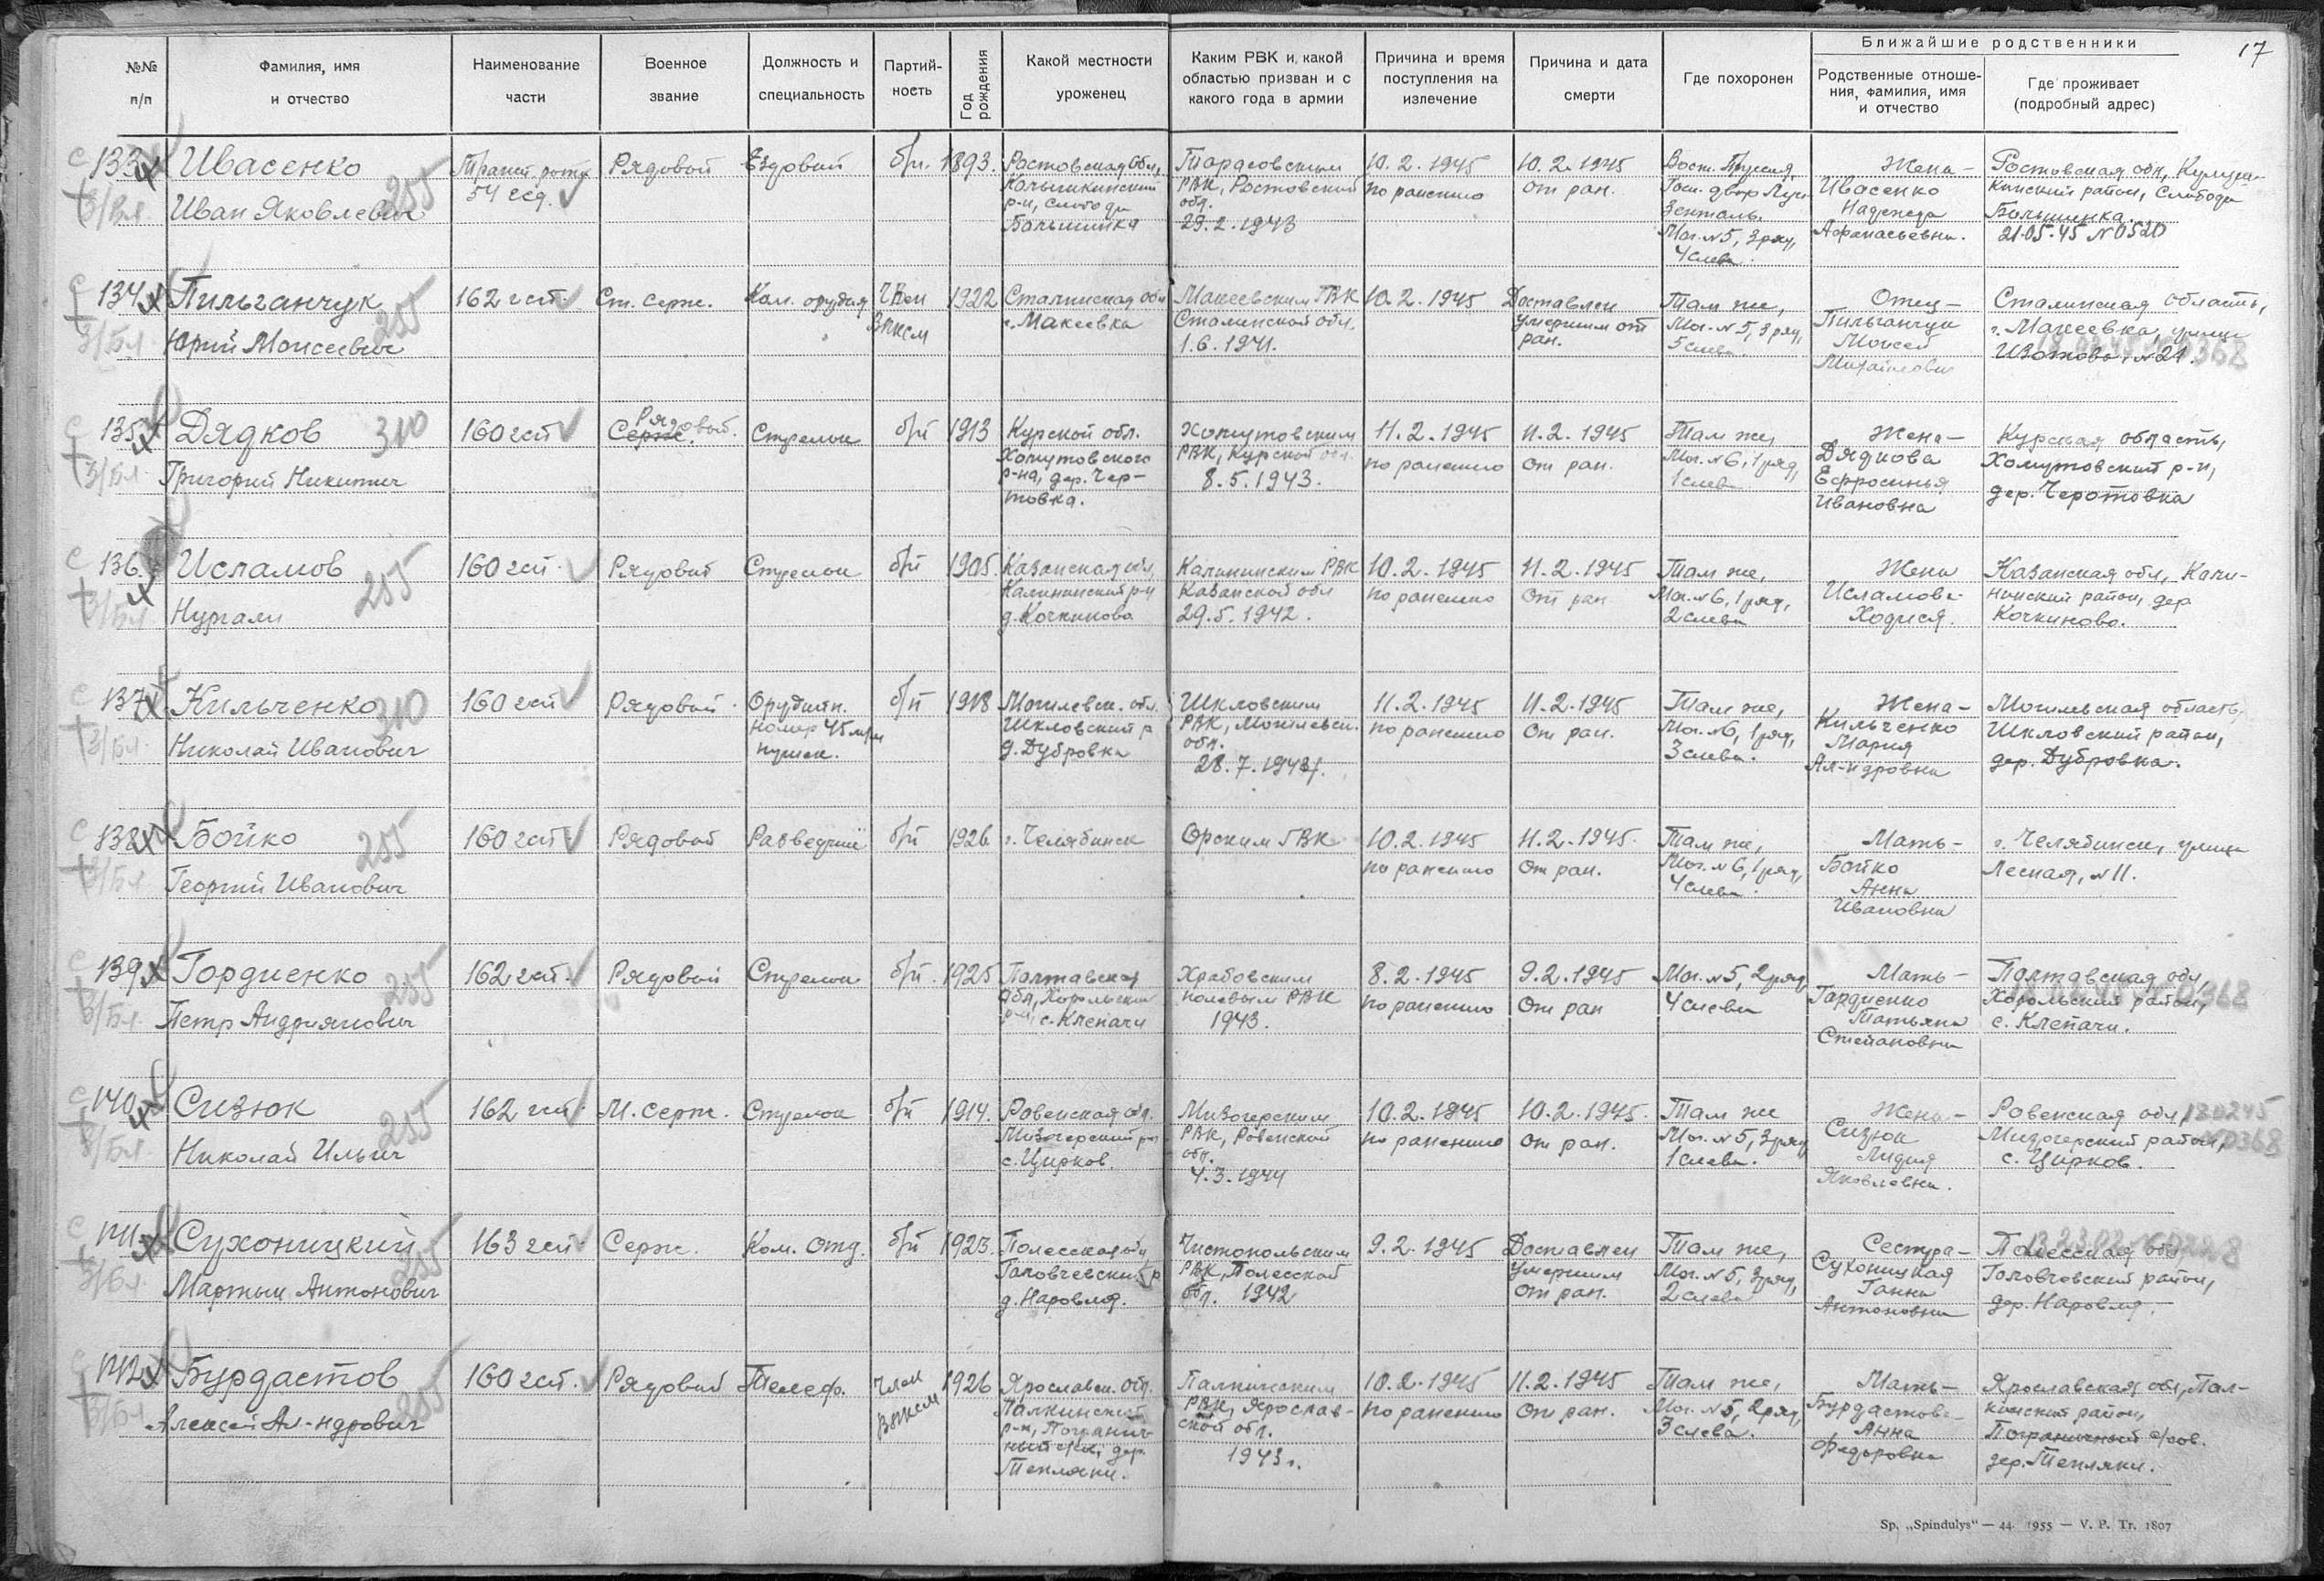 17
№№ п/п
Фамилия, имя и отчество
Наименование части
Военное звание
Должность и специальность
Партий-ность
Год рождения
Какой местности уроженец
Каким РВК и, какой областью призван и с какого года в армии
Причина и время поступления на излечение
Причина и дата смерти
Где похоронен
Ближайшие родственники
Родственные отноше-ния, фамилия, имя и отчество
Где проживает (подробный адрес)
133 Ивасенко Рядовой Ездовой б/п. 1893. Ростовская обл, Тарасовским 10.2.1945 10.2.1945 Вост. Пруссия, Жена- Ростовская обл,
З/Бл. Иван Яковлевич 255 54 гсд. р-н, слобода РВК, Ростовской по ранению от ран. Гос. двор Ивасенко район, Слобода
обл. Надежда
Большинка 23.2.1943 Мог. №5, 3 ряд, Афанасьевна. 21.05.45 №0520
4 слева.
134 Пильганчук 162 гсп. Ст. серж. Ком. орудия Член 1922 Сталинская обл Макеевским ГВК 10.2.1945 Доставлен Там же, Отец- Сталинская область,
З/Бл Юрий Моисеевич 255 ВЛКСМ г. Макеевка Сталинской обл. умершим от Мог. №5, 3 ряд, Пильганчук г. Макеевка, улица
1.6.1941. ран. 5 слева. Моисей Изотова, №21.
Михайлович
135 Дядков 310 160 гсп Рядовой Серж. Стрелок б/п 1913 Курской обл. Хомутовским 11.2.1945 11.2.1945 Там же, Жена- Курская область,
З/Бл Григорий Никитич Хомутовского РВК, Курской обл. по ранению от ран. Мог. №6, 1 ряд, Дядкова Хомутовский р-н,
р-на, дер. Чер- 8.5.1943. 1 слева Ефросинья дер. Черотовка
товка. Ивановна
136. Исламов 160 гсп. Рядовой Стрелок б/п 1905. Казанская обл, Калининским РВК 10.2.1945 11.2.1945 Там же, Жена Казанская обл, Кали-
З/Бл Нургали 255 Калининский р-н Казанской обл по ранению от ран Мог. №6, 1 ряд, Исламова нинский район, дер
д. Кочкиново 29.5.1942. 2 слева Ходися. Кочкиново.
137 Кильченко 310 160 гсп Рядовой Орудийн. б/п 1918 Могилевск. обл. Шкловским 11.2.1945 11.2.1945 Там же, Жена- Могилевская область,
З/Бл. Николай Иванович номер 45 м/м Шкловский р РВК, Могилевск. по ранению от ран. Мог. №6, 1 ряд, Кильченко Шкловский район,
пушек. д. Дубровка обл. 3 слева. Мария дер. Дубровка.
Ал-ндровна
138 Бойко 160 гсп Рядовой Разведчик б/п 1926 г. Челябинск Орским ГВК 10.2.1945 11.2.1945. Там же, Мать- г. Челябинск, улица
З/Бл Георгий Иванович 255 по ранению от ран. Мог. №6, 1 ряд, Бойко Лесная, №11.
4 слева. Анна
Ивановна
139 Гордиенко 162 гсп. Рядовой Стрелок б/п. 1925 Полтавская Храбовским 8.2.1945 9.2.1945 Мог. №5, 2 ряд Мать- Полтавская обл,
З/Бл. Петр Андриянович 255 обл, Хорольский полевым РВК по ранению от ран 4 слева Гордиенко Хорольский район,
р-н, с. Клепачи 1943. Татьяна с. Клепачи.
Степановна
140 Сизюк 162 гсп. М. серж. Стрелок б/п 1914. Ровенская обл. Мизогерским 10.2.1945 10.2.1945. Там же Жена- Ровенская обл, 180245
З/Бл. Николай Ильич 255 Мизогерский р-н РВК, Ровенской по ранению от ран. Мог. №5, 3 ряд Сизюк Мизогерский район, 0368
с. Цирков. обл. 1 слева. Лидия с. Цирков.
4.3.1944 Яковлевна.
141 Сухоницкий 163 гсп Серж. Ком. отд. б/п 1923. Полесская обл, Чистопольским 9.2.1945 Доставлен Там же, Сестра- Полесская обл
З/Бл. Мартын Антонович 255 д. Наровля. РВК, Полесской умершим Мог. №5, 3 ряд, Сухоницкая Головчевский район,
обл. 1942 от ран. 2 слева Ганна дер. Наровля.
Антоновна
142 Бурдастов 160 гсп. Рядовой Телеф. Член 1926 Ярославск. обл. Палкинским 10.2.1945 11.2.1945 Там же, Мать- Ярославская обл, Пал-
З/Бл Алексей Ал-ндрович 255 ВЛКСМ Палкинский РВК, Ярослав- по ранению от ран. Мог. №5, 2 ряд, Бурдастова кинский район,
р-н, Погранич- ской обл. 3 слева. Анна Пограничный с/сов.
ный с/с, дер. 1943 г. Федоровна дер. Тепляки.
Тепляки.
Sp. „Spindulys“ — 44. 1955 — V. P. Tr. 1807